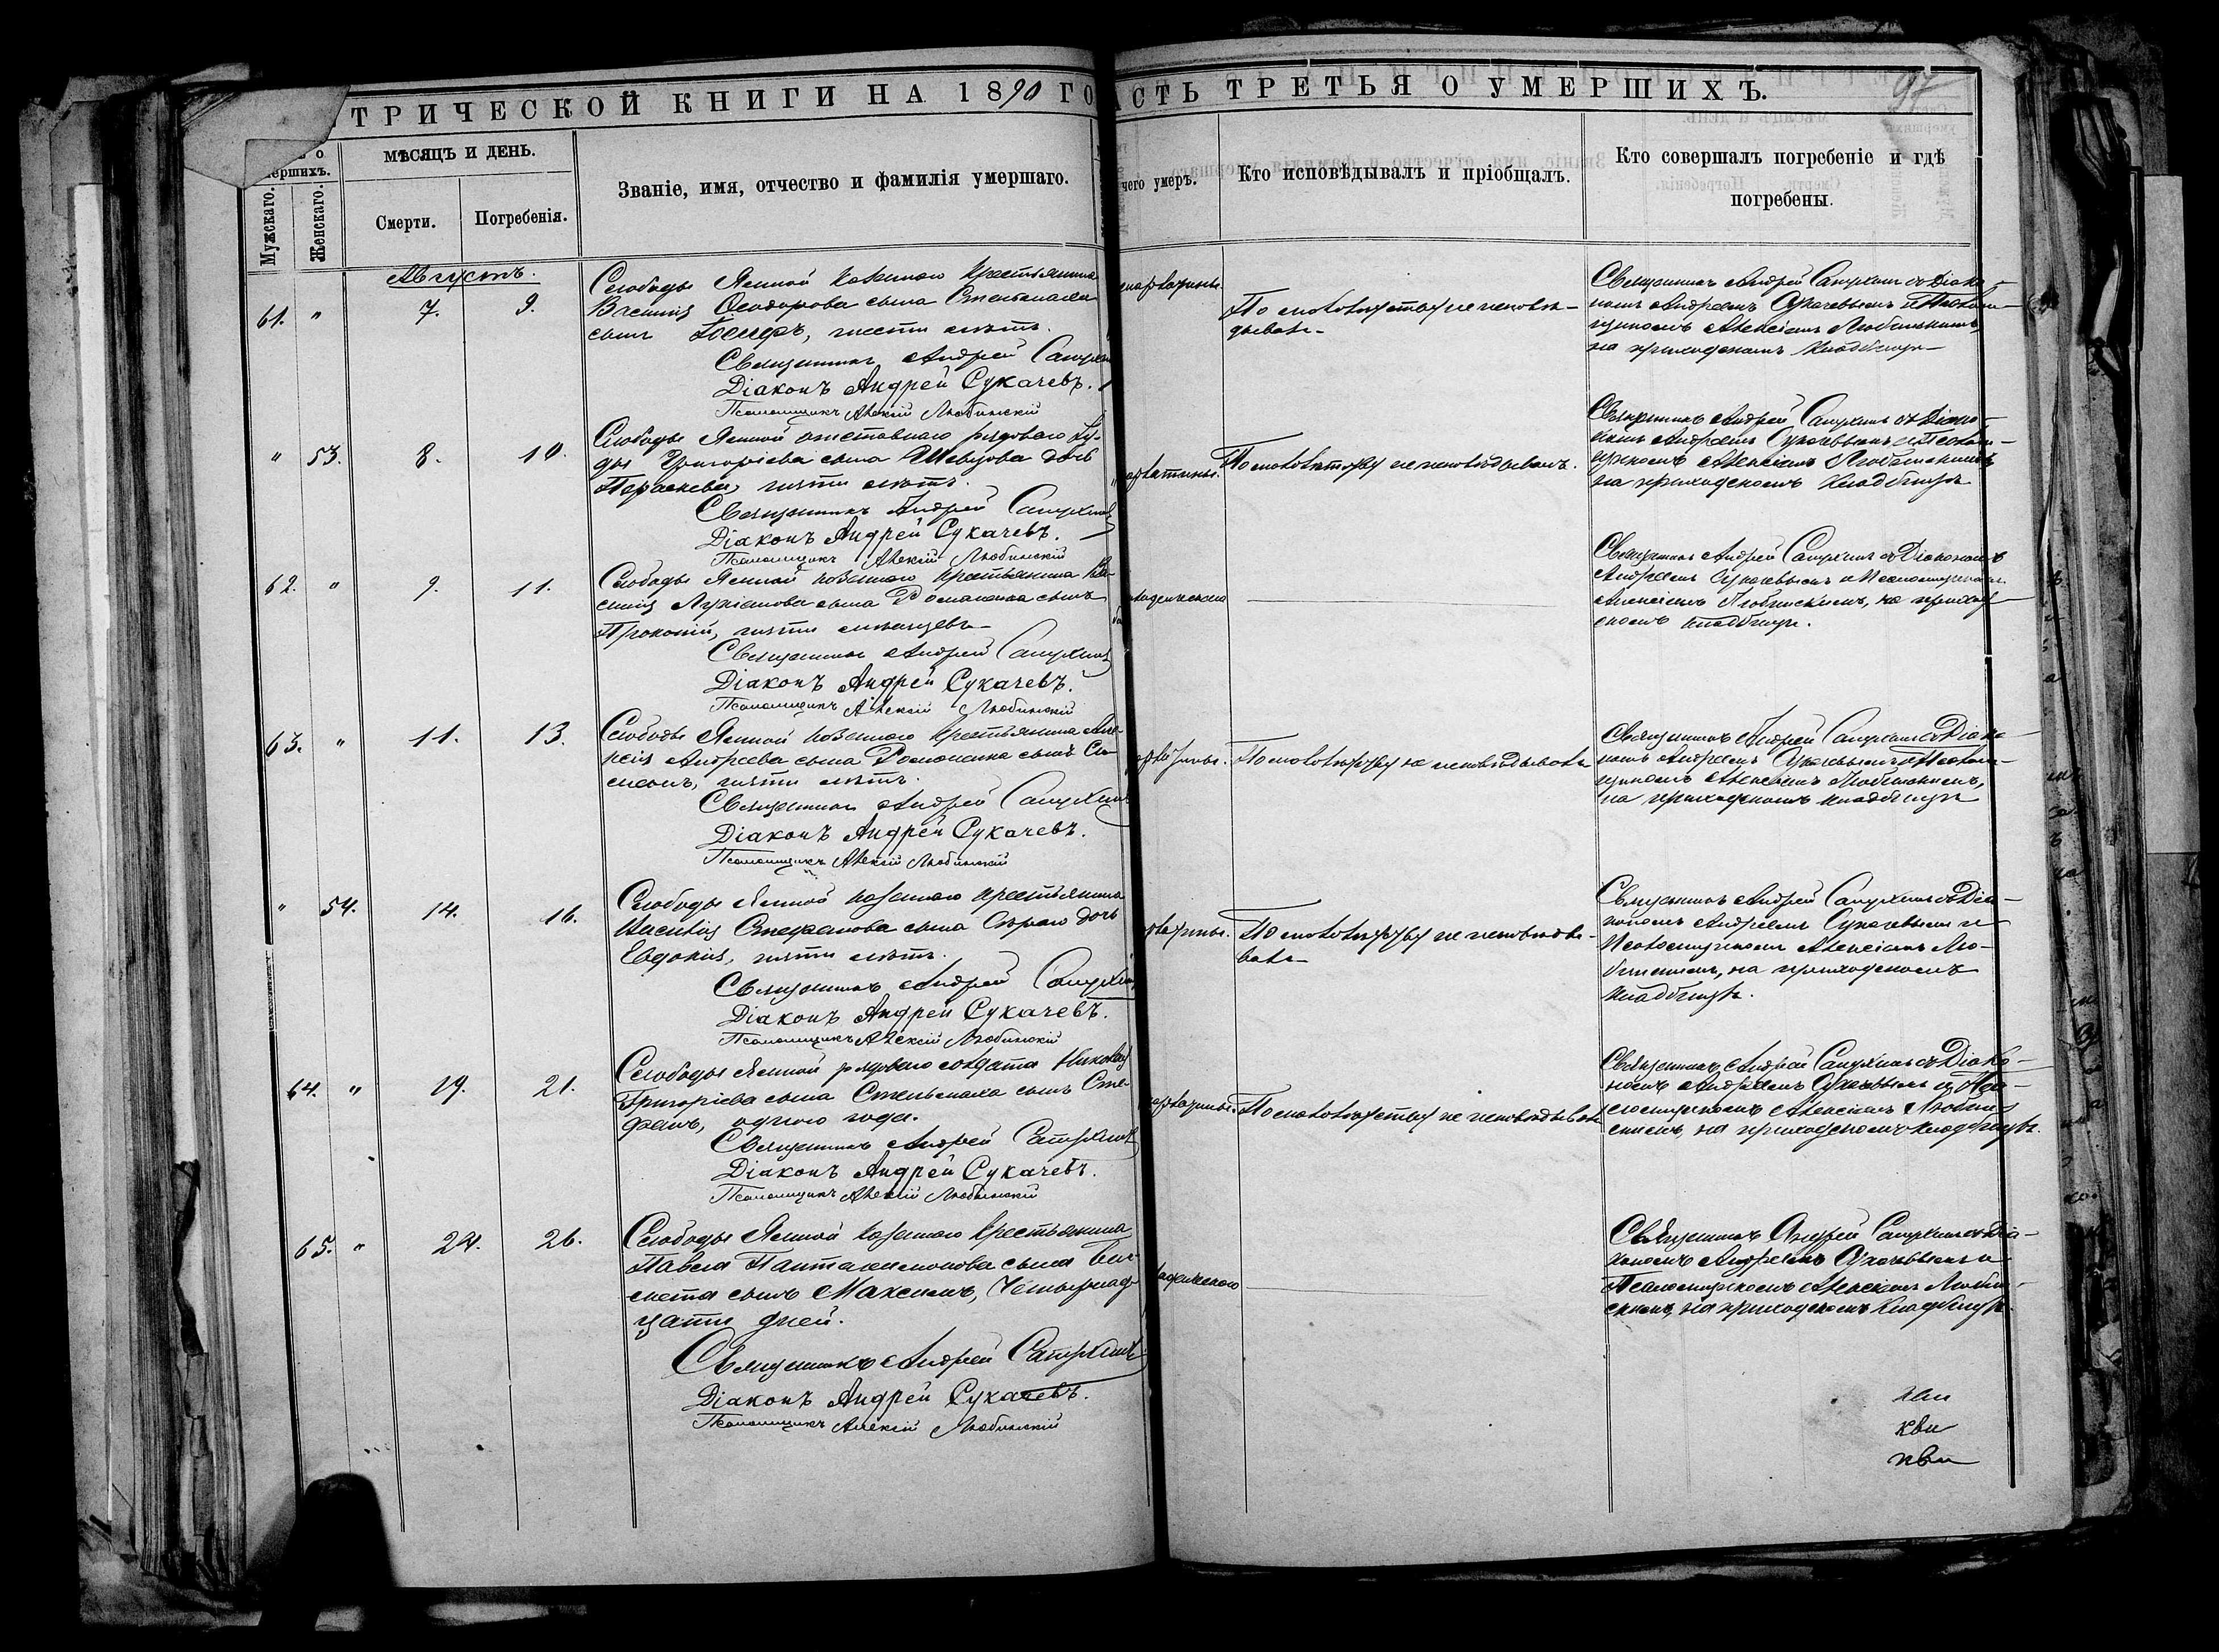 ТРИЧЕСКОЙ КНИГИ НА 1890 ГО
АСТЬ ТРЕТЬЯ О УМЕРШИХЪ.
97
мершихъ.
Мужскаго.
Женскаго.
МѢСЯЦЪ И ДЕНЬ.
Смерти.
Погребенія.
Званіе, имя, отчество и фамилія умершаго.
чего умеръ.
Кто исповѣдывалъ и пріобщалъ.
Кто совершалъ погребеніе и гдѣ
погребены.
Августъ.
61. " 7. 9.
Слободы Ясиной казеннаго крестьянина
Василія Ѳеодорова сына
сынъ шести лѣтъ.
Священникъ Андрей
Діаконъ Андрей Сукачевъ.
Псаломщикъ Алексій Любинскій
По малолѣтству не исповѣ-
дыванъ
Священникъ Андрей съ Діако-
номъ Андреемъ Сукачевымъ и Псалом-
щикомъ Алексіемъ Любинскимъ
на приходскомъ кладбищѣ
" 53. 8. 10.
Слободы Ясиной отставнаго рядоваго
Григоріева сына Шевцова дочь
Параскева, пяти лѣтъ.
Священникъ Андрей
Діаконъ Андрей Сукачевъ.
Псаломщикъ Алексій Любинскій
По малолѣтству не исповѣдыванъ.
Священникъ Андрей съ Діако-
номъ Андреемъ Сукачевымъ и Псалом-
щикомъ Алексіемъ Любинскимъ
на приходскомъ кладбищѣ
62. " 9. 11.
Слободы Ясиной казеннаго крестьянина Ва-
силія Лукіанова сына Романенка сынъ
Прокопій, пяти мѣсяцевъ
Священникъ Андрей
Діаконъ Андрей Сукачевъ.
Псаломщикъ Алексій Любинскій
Священникъ Андрей съ Діакономъ
Андреемъ Сукачевымъ и Псаломщикомъ
Алексіемъ Любинскимъ, на приход-
скомъ кладбищѣ.
63. " 11. 13.
Слободы Ясиной казеннаго крестьянина Але-
ксія Андреева сына Романенка сынъ Си-
меонъ, пяти лѣтъ.
Священникъ Андрей
Діаконъ Андрей Сукачевъ.
Псаломщикъ Алексій Любинскій
По малолѣтству не исповѣдыванъ
Священникъ Андрей съ Діако-
номъ Андреемъ Сукачевымъ и Псалом-
щикомъ Алексіемъ Любинскимъ,
на приходскомъ кладбищѣ
" 54. 14. 16.
Слободы Ясиной казеннаго крестьянина
Стефанова сына Сѣраго дочь
Евдокія, пяти лѣтъ.
Священникъ Андрей
Діаконъ Андрей Сукачевъ.
Псаломщикъ Алексій Любинскій
По малолѣтству не исповѣды-
ванъ
Священникъ Андрей съ Діа-
кономъ Андреемъ Сукачевымъ и
Псаломщикомъ Алексіемъ Лю-
бинскимъ, на приходскомъ
кладбищѣ.
64. " 19. 21.
Слободы Ясиной рядоваго солдата Николая
Григоріева сына сынъ Сте-
фанъ, одного года.
Священникъ Андрей
Діаконъ Андрей Сукачевъ.
Псаломщикъ Алексій Любинскій
По малолѣтству не исповѣдыванъ
Священникъ Андрей съ Діако-
номъ Андреемъ Сукачевымъ и Пса-
ломщикомъ Алексіемъ Любин-
скимъ, на приходскомъ кладбищѣ.
65. " 24. 26.
Слободы Ясиной казеннаго крестьянина
Павла Пантелеимонова сына
сынъ Максимъ, четырнад-
цати дней.
Священникъ Андрей
Діаконъ Андрей Сукачевъ.
Псаломщикъ Алексій Любинскій
Священникъ Андрей съ Діа-
кономъ Андреемъ Сукачевымъ и
Псаломщикомъ Алексіемъ Любин-
скимъ, на приходскомъ кладбищѣ.